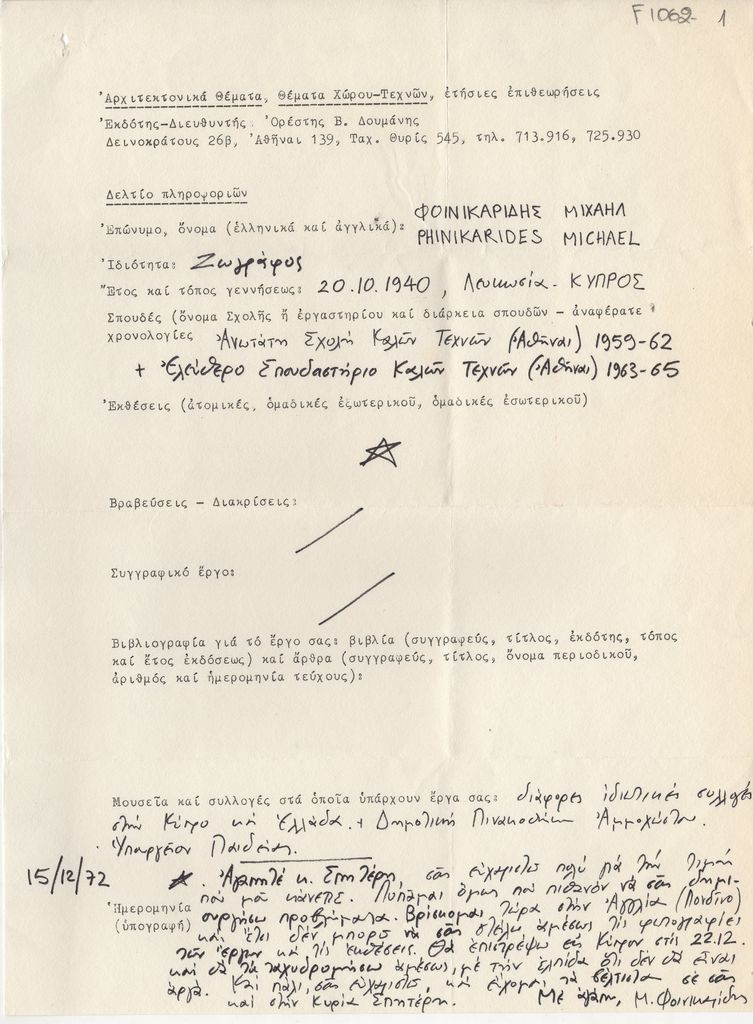 F1062- 1
'Αρχιτεκτονικά Θέματα, Θέματα Χώρου-Τεχνῶν, ἐτήσιες ἐπιθεωρήσεις
'Εκδότης-Διευθυντής: 'Ορέστης Β. Δουμάνης
Δεινοκράτους 26β, 'Αθῆναι 139, Ταχ. Θυρίς 545, τηλ. 713.916, 725.930
Δελτίο πληροφοριῶν
'Επώνυμο, ὄνομα (ἑλληνικά καί ἀγγλικά): ΦΟΙΝΙΚΑΡΙΔΗΣ ΜΙΧΑΗΛ
PHINIKARIDES MICHAEL
'Ιδιότητα: Ζωγράφος
"Ετος καί τόπος γεννήσεως: 20.10.1940, Λευκωσία. ΚΥΠΡΟΣ
Σπουδές (ὄνομα Σχολῆς ἤ ἐργαστηρίου καί διάρκεια σπουδῶν - ἀναφέρατε
χρονολογίες Ἀνωτάτη Σχολή Καλῶν Τεχνῶν (Ἀθῆναι) 1959-62
+ Ἐλεύθερο Σπουδαστήριο Καλῶν Τεχνῶν (Ἀθῆναι) 1963-65
'Εκθέσεις (ἀτομικές, ὁμαδικές ἐξωτερικοῦ, ὁμαδικές ἐσωτερικοῦ)
Βραβεύσεις - Διακρίσεις:
Συγγραφικό ἔργο:
Βιβλιογραφία γιά τό ἔργο σας: βιβλία (συγγραφεύς, τίτλος, ἐκδότης, τόπος
καί ἔτος ἐκδόσεως) καί ἄρθρα (συγγραφεύς, τίτλος, ὄνομα περιοδικοῦ,
ἀριθμός καί ἡμερομηνία τεύχους):
Μουσεῖα καί συλλογές στά ὁποῖα ὑπάρχουν ἔργα σας: διάφορες ἰδιωτικές συλλογές
στήν Κύπρο καί Ἑλλάδα. + Δημοτική Πινακοθήκη Ἀμμοχώστου.
Ὑπουργεῖον Παιδείας.
15/12/72
'Ημερομηνία
(ὑπογραφή)
Ἀγαπητέ κ. Σπητέρη, σᾶς εὐχαριστῶ πολύ γιά τήν τιμή
πού μοῦ κάνετε. Λυπᾶμαι ὅμως πού πιθανόν νά σᾶς δημι-
ουργήσω προβλήματα. Βρίσκομαι τώρα στήν Ἀγγλία (Λονδῖνο)
καί ἔτσι δέν μπορῶ νά σᾶς στείλω ἀμέσως τίς φωτογραφίες
τῶν ἔργων καί τίς ἐκθέσεις. Θά ἐπιστρέψω εἰς Κύπρον στίς 22.12.
καί θά τά ταχυδρομήσω ἀμέσως, μέ τήν ἐλπίδα ὅτι δέν θά εἶναι
ἀργά. Καί πάλι, σᾶς εὐχαριστῶ, καί εὔχομαι τά βέλτιστα σέ σᾶς
καί στήν Κυρία Σπητέρη. Μέ ἀγάπη, Μ. Φοινικαρίδης